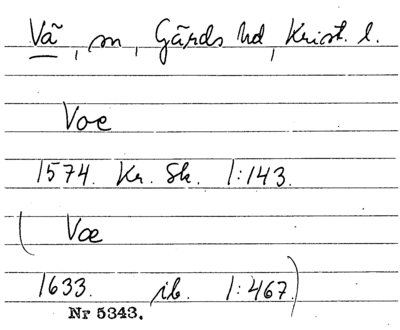 Vã, sn, Gärds hd, Krist. l.
Voe
1574. Kr. Sk. 1:143.
( Voe
1633. ib. 1:467.)
Nr 5343.